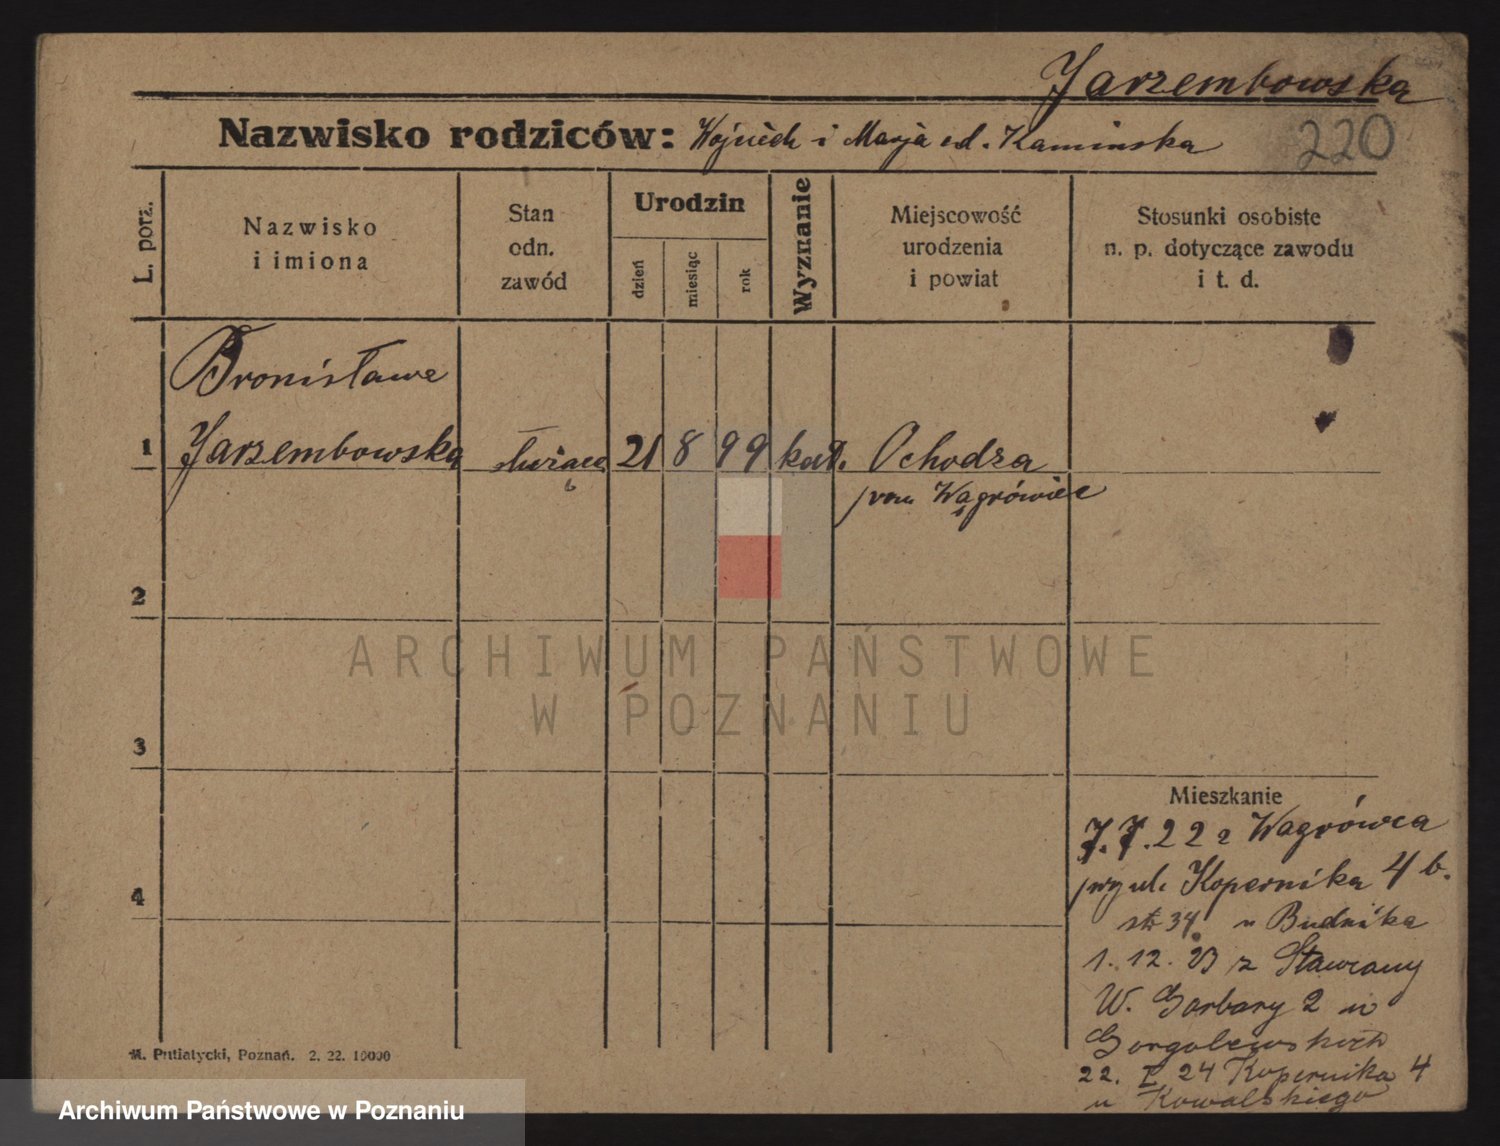 Jarzembowska
Nazwisko rodziców: Wojciech i Marja od. Kaminska
220
L. porz.
Nazwisko
i imiona
Stan
odn.
zawód
Urodzin
dzień
miesiąc
rok
Wyznanie
Miejscowość
urodzenia
i powiat
Stosunki osobiste
n. p. dotyczące zawodu
i t. d.
Bronisława
1 Jarzembowska służąca 21 8 99 kat. Ochodza
pow. Wągrówiec
2
ARCHIWUM PAŃSTWOWE
W POZNANIU
3
Mieszkanie
7.7.22 z Wagrówca
ul. Kopernika 4 b.
34 u Budnika
4
1. 12. 23 z
W. Garbary 2 u
22. I 24 Kopernika 4
u Kowalskiego
M. Putiatycki, Poznań. 2. 22. 10000
Archiwum Państwowe w Poznaniu